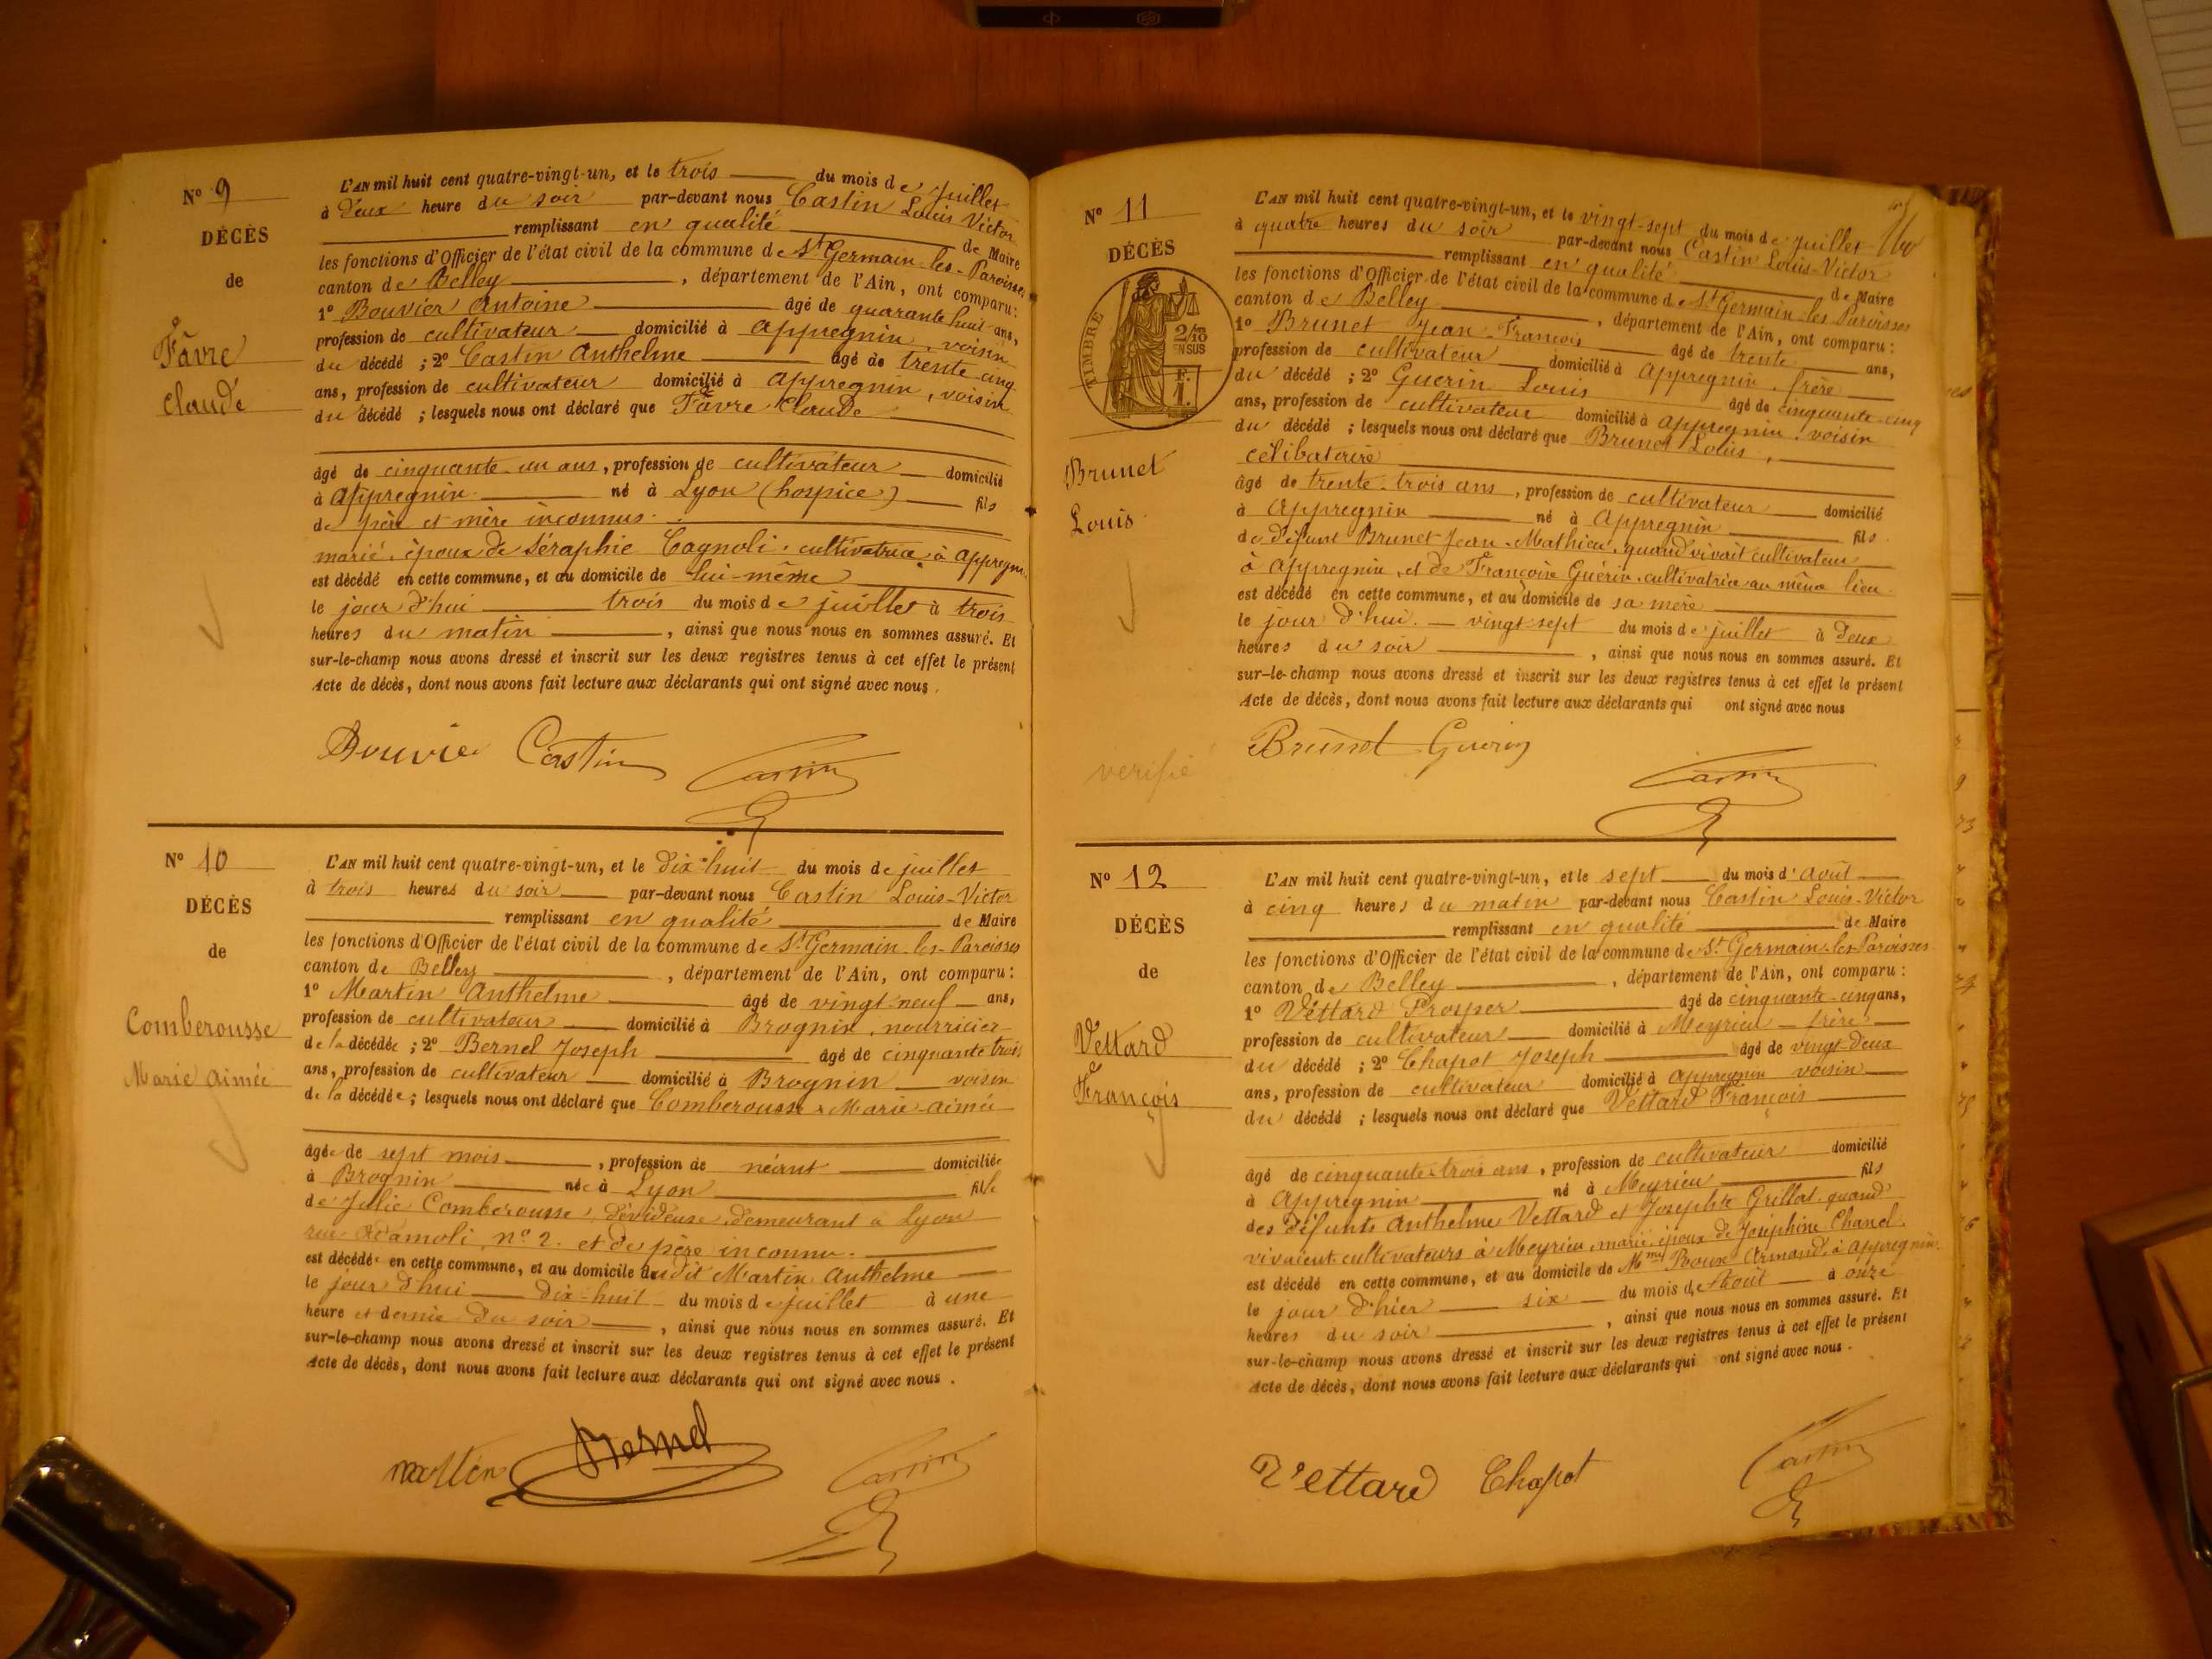 N° 9
DÉCÈS
de
Fâvre
Claude
L'AN mil huit cent quatre-vingt-un, et le trois du mois de Juillet
à deux heure du soir par-devant nous Castin Louis Victor
remplissant en qualité de Maire
les fonctions d'Officier de l'état civil de la commune de St Germain-les-Paroisses
canton de Belley, département de l'Ain, ont comparu:
1° Bouvier Antoine âgé de quarante huit ans,
profession de cultivateur domicilié à Appregnin, voisin
du décédé ; 2° Castin Anthelme âgé de trente-cinq
ans, profession de cultivateur domicilié à Appregnin, voisin
du décédé ; lesquels nous ont déclaré que Fâvre Claude
âgé de cinquante-un ans, profession de cultivateur domicilié
à Appregnin né à Lyon (hospice) fils
de père et mère inconnus.
marié, époux de Séraphie Cagnoli, cultivatrice à Appregnin
est décédé en cette commune, et au domicile de lui-même
le jour d'hui trois du mois de juillet à trois
heures du matin, ainsi que nous nous en sommes assuré. Et
sur-le-champ nous avons dressé et inscrit sur les deux registres tenus à cet effet le présent
Acte de décès, dont nous avons fait lecture aux déclarants qui ont signé avec nous.
Bouvier Castin Castin
N° 10
DÉCÈS
de
Comberousse
Marie aimée
L'AN mil huit cent quatre-vingt-un, et le dix-huit du mois de juillet
à trois heures du soir par-devant nous Castin Louis-Victor
remplissant en qualité de Maire
les fonctions d'Officier de l'état civil de la commune de St Germain-les-Paroisses
canton de Belley, département de l'Ain, ont comparu:
1° Martin Anthelme âgé de vingt-neuf ans,
profession de cultivateur domicilié à Brognin, nourricier
de la décédée ; 2° Bernel Joseph âgé de cinquante trois
ans, profession de cultivateur domicilié à Brognin voisin
de la décédée ; lesquels nous ont déclaré que Comberousse Marie-aimée
âgée de sept mois, profession de néant domiciliée
à Brognin née à Lyon fille
de Julie Comberousse, dévideuse, demeurant à Lyon
rue Adamoli, n° 2. et de père inconnu.
est décédée en cette commune, et au domicile dudit Martin Anthelme
le jour d'hui dix-huit du mois de juillet à une
heure et demie du soir, ainsi que nous nous en sommes assuré. Et
sur-le-champ nous avons dressé et inscrit sur les deux registres tenus à cet effet le présent
Acte de décès, dont nous avons fait lecture aux déclarants qui ont signé avec nous.
Bernel Castin
N° 11
DÉCÈS
TIMBRE
2/10
EN SUS
F.
1.
Brunet
Louis
verifié
L'AN mil huit cent quatre-vingt-un, et le vingt-sept du mois de juillet
à quatre heures du soir par-devant nous Castin Louis-Victor
remplissant en qualité de Maire
les fonctions d'Officier de l'état civil de la commune de St Germain-les-Paroisses
canton de Belley, département de l'Ain, ont comparu:
1° Brunet Jean-François âgé de trente ans,
profession de cultivateur domicilié à Appregnin, frère
du décédé ; 2° Guérin Louis âgé de cinquante-cinq
ans, profession de cultivateur domicilié à Appregnin, voisin
du décédé ; lesquels nous ont déclaré que Brunet Louis,
célibataire
âgé de trente-trois ans, profession de cultivateur domicilié
à Appregnin né à Appregnin fils
de défunt Brunet Jean-Mathieu, quand vivait cultivateur
à Appregnin, et de Françoise Guérin, cultivatrice au même lieu
est décédé en cette commune, et au domicile de sa mère
le jour d'hui vingt-sept du mois de juillet à deux
heures du soir, ainsi que nous nous en sommes assuré. Et
sur-le-champ nous avons dressé et inscrit sur les deux registres tenus à cet effet le présent
Acte de décès, dont nous avons fait lecture aux déclarants qui ont signé avec nous
Brunet Guerin Castin
N° 12
DÉCÈS
de
Vettard
François
L'AN mil huit cent quatre-vingt-un, et le sept du mois d'Août
à cinq heures du matin par-devant nous Castin Louis-Victor
remplissant en qualité de Maire
les fonctions d'Officier de l'état civil de la commune de St Germain-les-Paroisses
canton de Belley, département de l'Ain, ont comparu :
1° Vettard Prosper âgé de cinquante-cinq ans,
profession de cultivateur domicilié à Meyrieu frère
du décédé ; 2° Chapot Joseph âgé de vingt-deux
ans, profession de cultivateur domicilié à Appregnin voisin
du décédé ; lesquels nous ont déclaré que Vettard François
âgé de cinquante-trois ans, profession de cultivateur domicilié
à Appregnin né à Meyrieu fils
des défunts Anthelme Vettard et Josephte Grillat, quand
vivaient cultivateurs à Meyrieu, marié, époux de Joséphine Chanel.
est décédé en cette commune, et au domicile de Mme Roux Armand, à Appregnin
le jour d'hier six du mois d'Août à onze
heures du soir, ainsi que nous nous en sommes assuré. Et
sur-le-champ nous avons dressé et inscrit sur les deux registres tenus à cet effet le présent
Acte de décès, dont nous avons fait lecture aux déclarants qui ont signé avec nous.
Vettard Chapot Castin